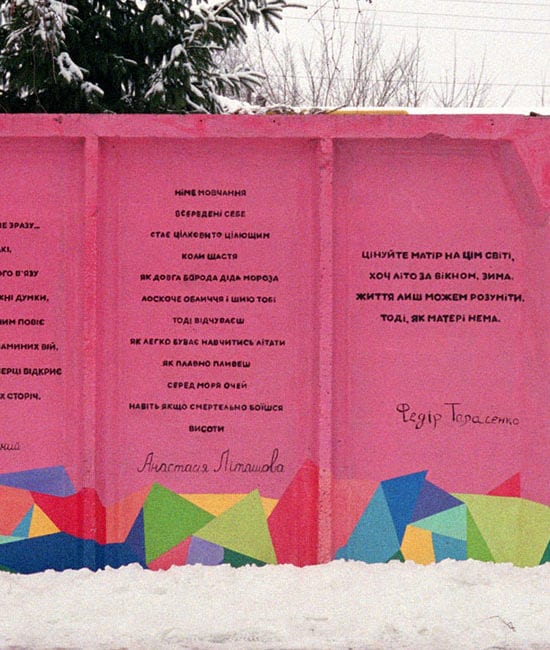 Е ЗРАЗУ...
КІ,
ОГО В'ЯЗУ
ХНІ ДУМКИ,
ЧИМ ПОВІЄ
АМИНИХ ВІЙ,
ЕРЦІ ВІДКРИЄ
Х СТОРІЧ.
ний
НІМЕ МОВЧАННЯ
ВСЕРЕДЕНІ СЕБЕ
СТАЄ ЦІЛКОВИТО ЦІЛЮЩИМ
КОЛИ ЩАСТЯ
ЯК ДОВГА БОРОДА ДІДА МОРОЗА
ЛОСКОЧЕ ОБЛИЧЧЯ І ШИЮ ТОБІ
ТОДІ ВІДЧУВАЄШ
ЯК ЛЕГКО БУВАЄ НАВЧИТИСЬ ЛІТАТИ
ЯК ПЛАВНО ПЛИВЕШ
СЕРЕД МОРЯ ОЧЕЙ
НАВІТЬ ЯКЩО СМЕРТЕЛЬНО БОЇШСЯ
ВИСОТИ
Анастасія Літашова
ЦІНУЙТЕ МАТІР НА ЦІМ СВІТІ,
ХОЧ ЛІТО ЗА ВІКНОМ, ЗИМА.
ЖИТТЯ ЛИШ МОЖЕМ РОЗУМІТИ,
ТОДІ, ЯК МАТЕРІ НЕМА.
Федір Тарасенко